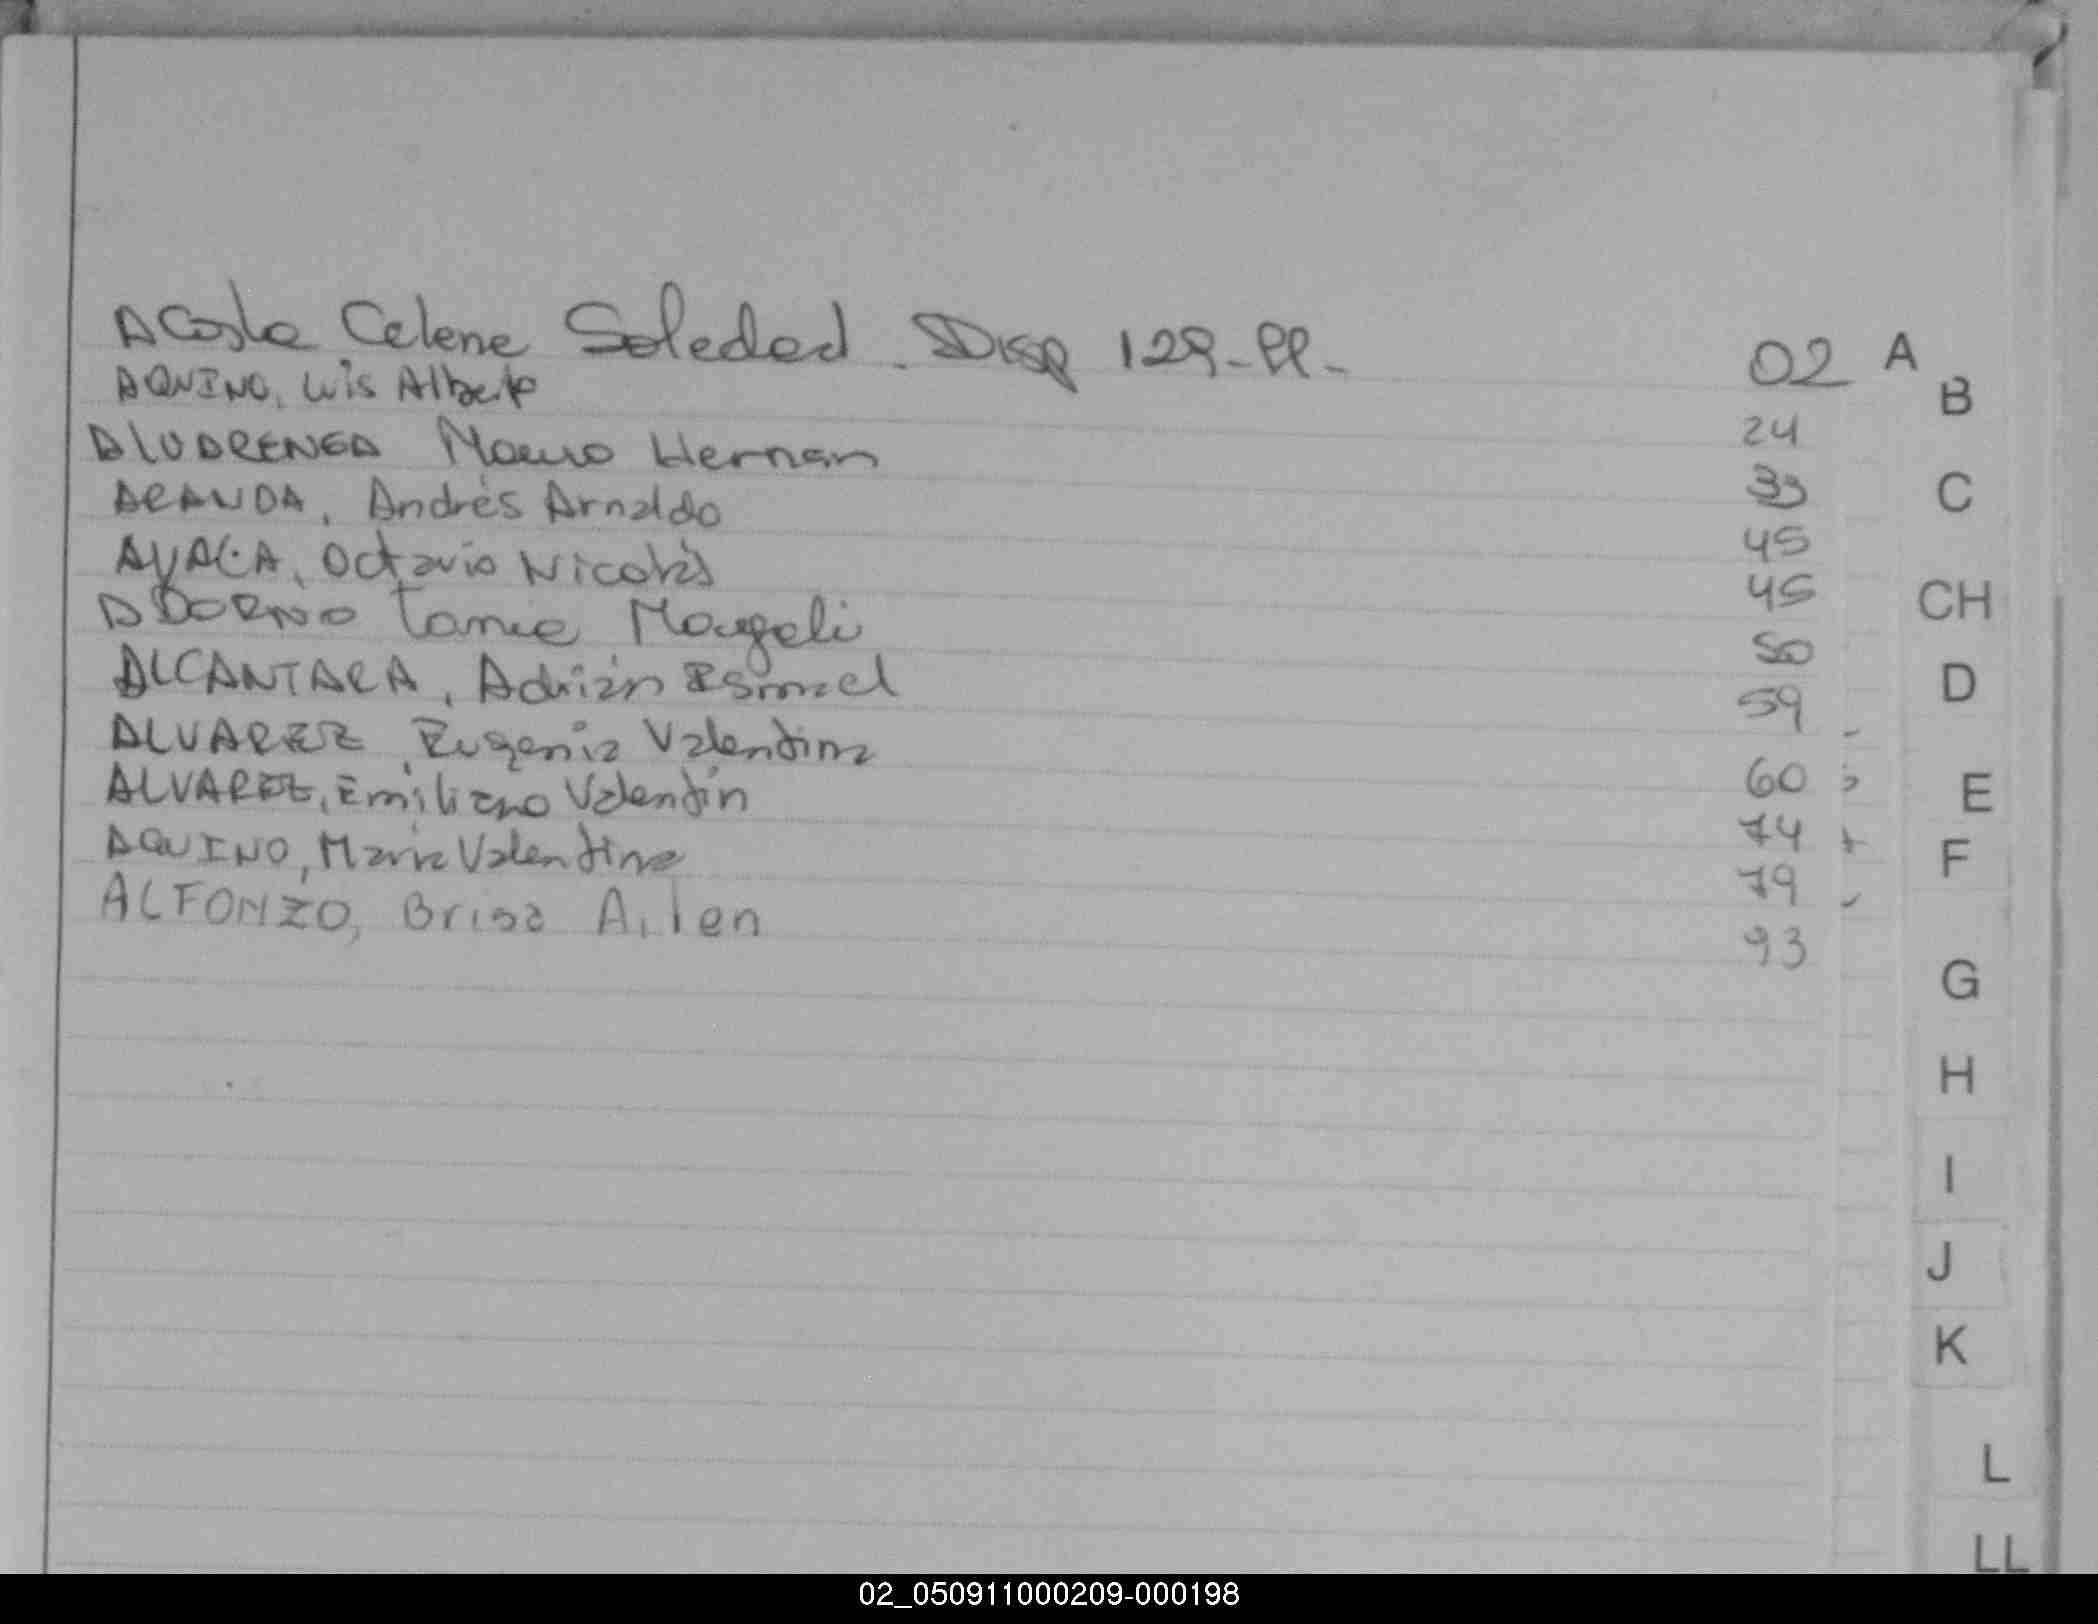 Acosta Celene Soledad. Disp 129-PP- 02 A
B
AQUINO, Luis Alberto 24
ALVARENGA Mauro Hernan 33
C
ARANDA, Andrés Arnaldo 45
AYALA, Octavio Nicolás 45
CH
ADORNO Tania Magali 50
D
ALCANTARA, Adrián Ismael 59
ALVAREZ, Eugenia Valentina 60
E
ALVAREZ, Emiliano Valentín 74
F
AQUINO, María Valentina 79
ALFONZO, Brisa Ailen 93
G
H
I
J
K
L
LL
02_050911000209-000198